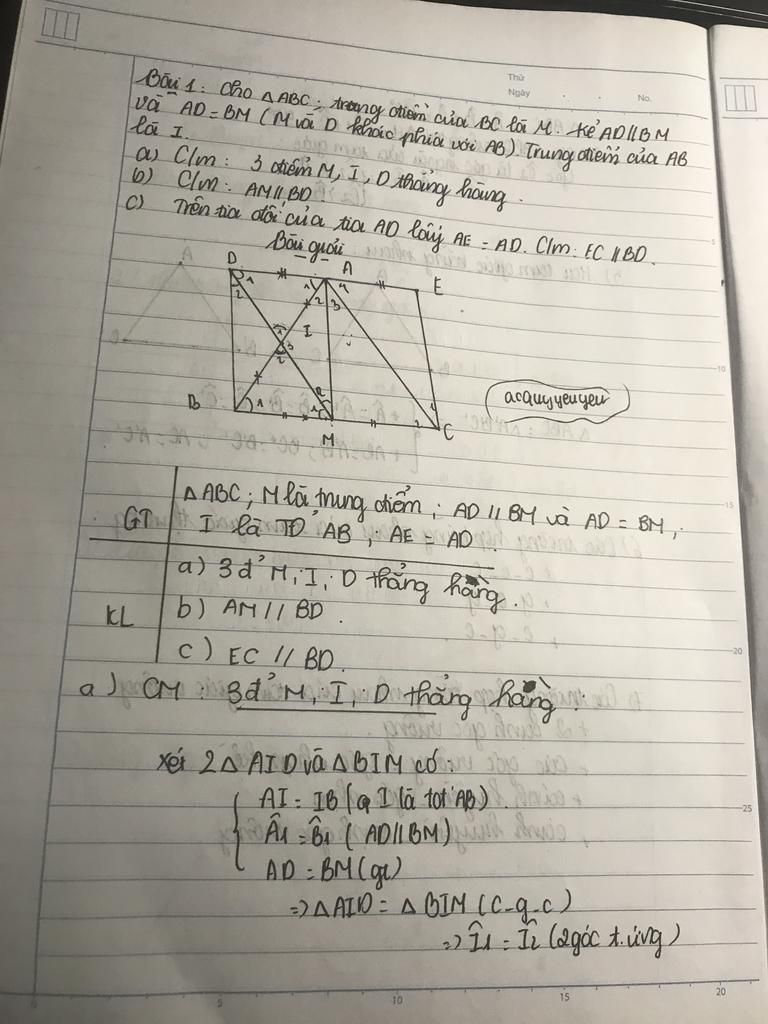 Thứ
Ngày . . No.
Bài 1: Cho △ABC; trung điểm của BC là M. Kẻ AD//BM
và AD = BM (M và D khác phía với AB). Trung điểm của AB
là I.
a) C/m: 3 điểm M, I, D thẳng hàng.
b) C/m: AM // BD.
c) Trên tia đối của tia AD lấy AE = AD. C/m: EC // BD.
Bài giải
D A E
1 2 1 2 3 4
1 I 3 2
B 1 1 2 M 2 1 C
acquyyeuyeu
GT △ABC; M là trung điểm; AD // BM và AD = BM;
I là TĐ AB; AE = AD.
KL a) 3 đ' M, I, D thẳng hàng.
b) AM // BD.
c) EC // BD.
a) CM: 3 đ' M, I, D thẳng hàng:
Xét 2△ AID và △BIM có:
AI = IB ( I là tđ' AB)
Â1 = B̂1 (AD//BM)
AD = BM (gt)
=> △AID = △BIM (c-g-c)
=> Î1 = Î2 (2 góc t.ứng)
5
10
15
20
25
0 5 10 15 20